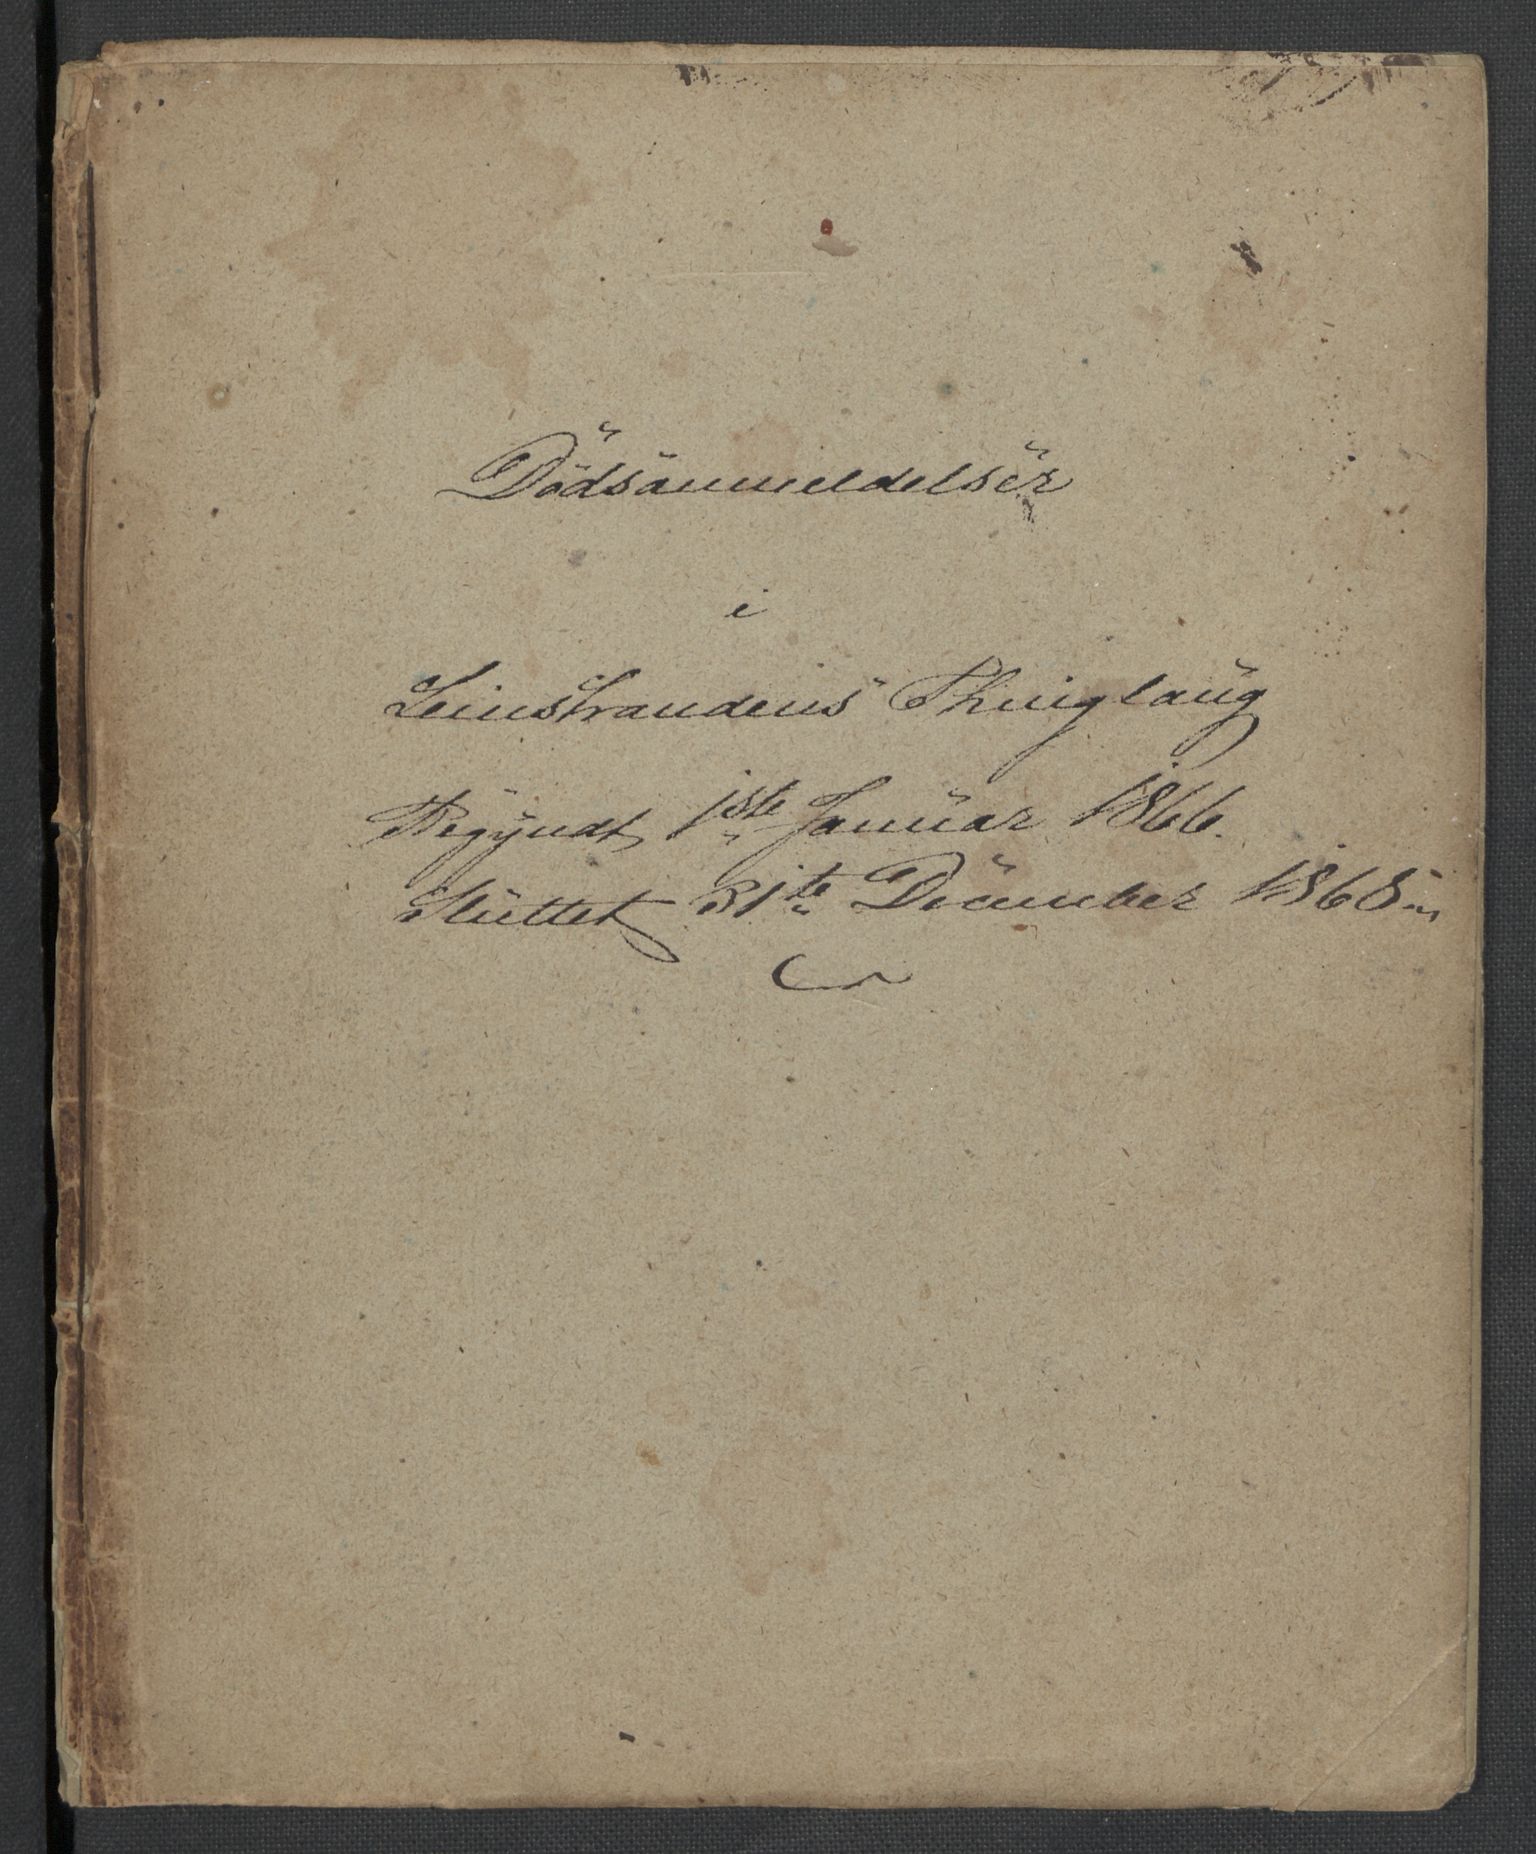 Dödsanmeldelser
i
Leinstrandens Thinglaug
Begyndt 1ste Januar 1866.
Sluttet 31te December 1868